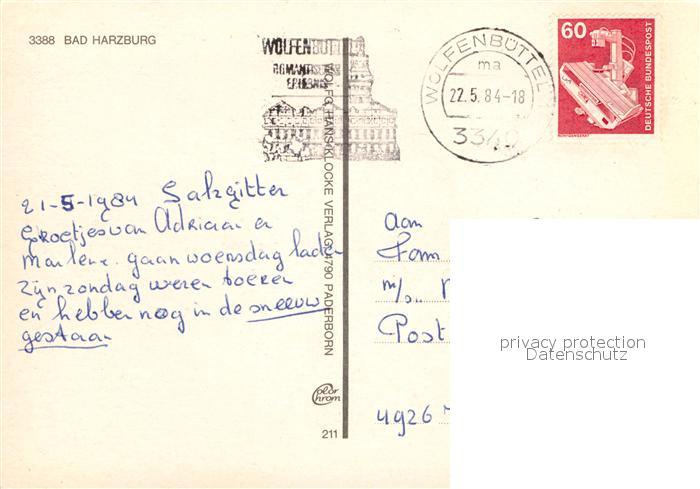 3388 BAD HARZBURG
WOLFENBÜTTEL
ROMANTISCHES
ERLEBNIS
WOLFENBÜTTEL
ma
22.5.84-18
3340
60
DEUTSCHE BUNDESPOST
RÖNTGENGERÄT
WOLFG. HANS KLOCKE VERLAG, 4790 PADERBORN
21-5-1984 Salzgitter
Groetjes van Adriaan en
Marlene. gaan woensdag laden
zijn zondag weren toeren
en hebben nog in de sneeuw
gestaan
Aan
Fam
m/s..
Post
4926
privacy protection
Datenschutz
Color
chrom
211